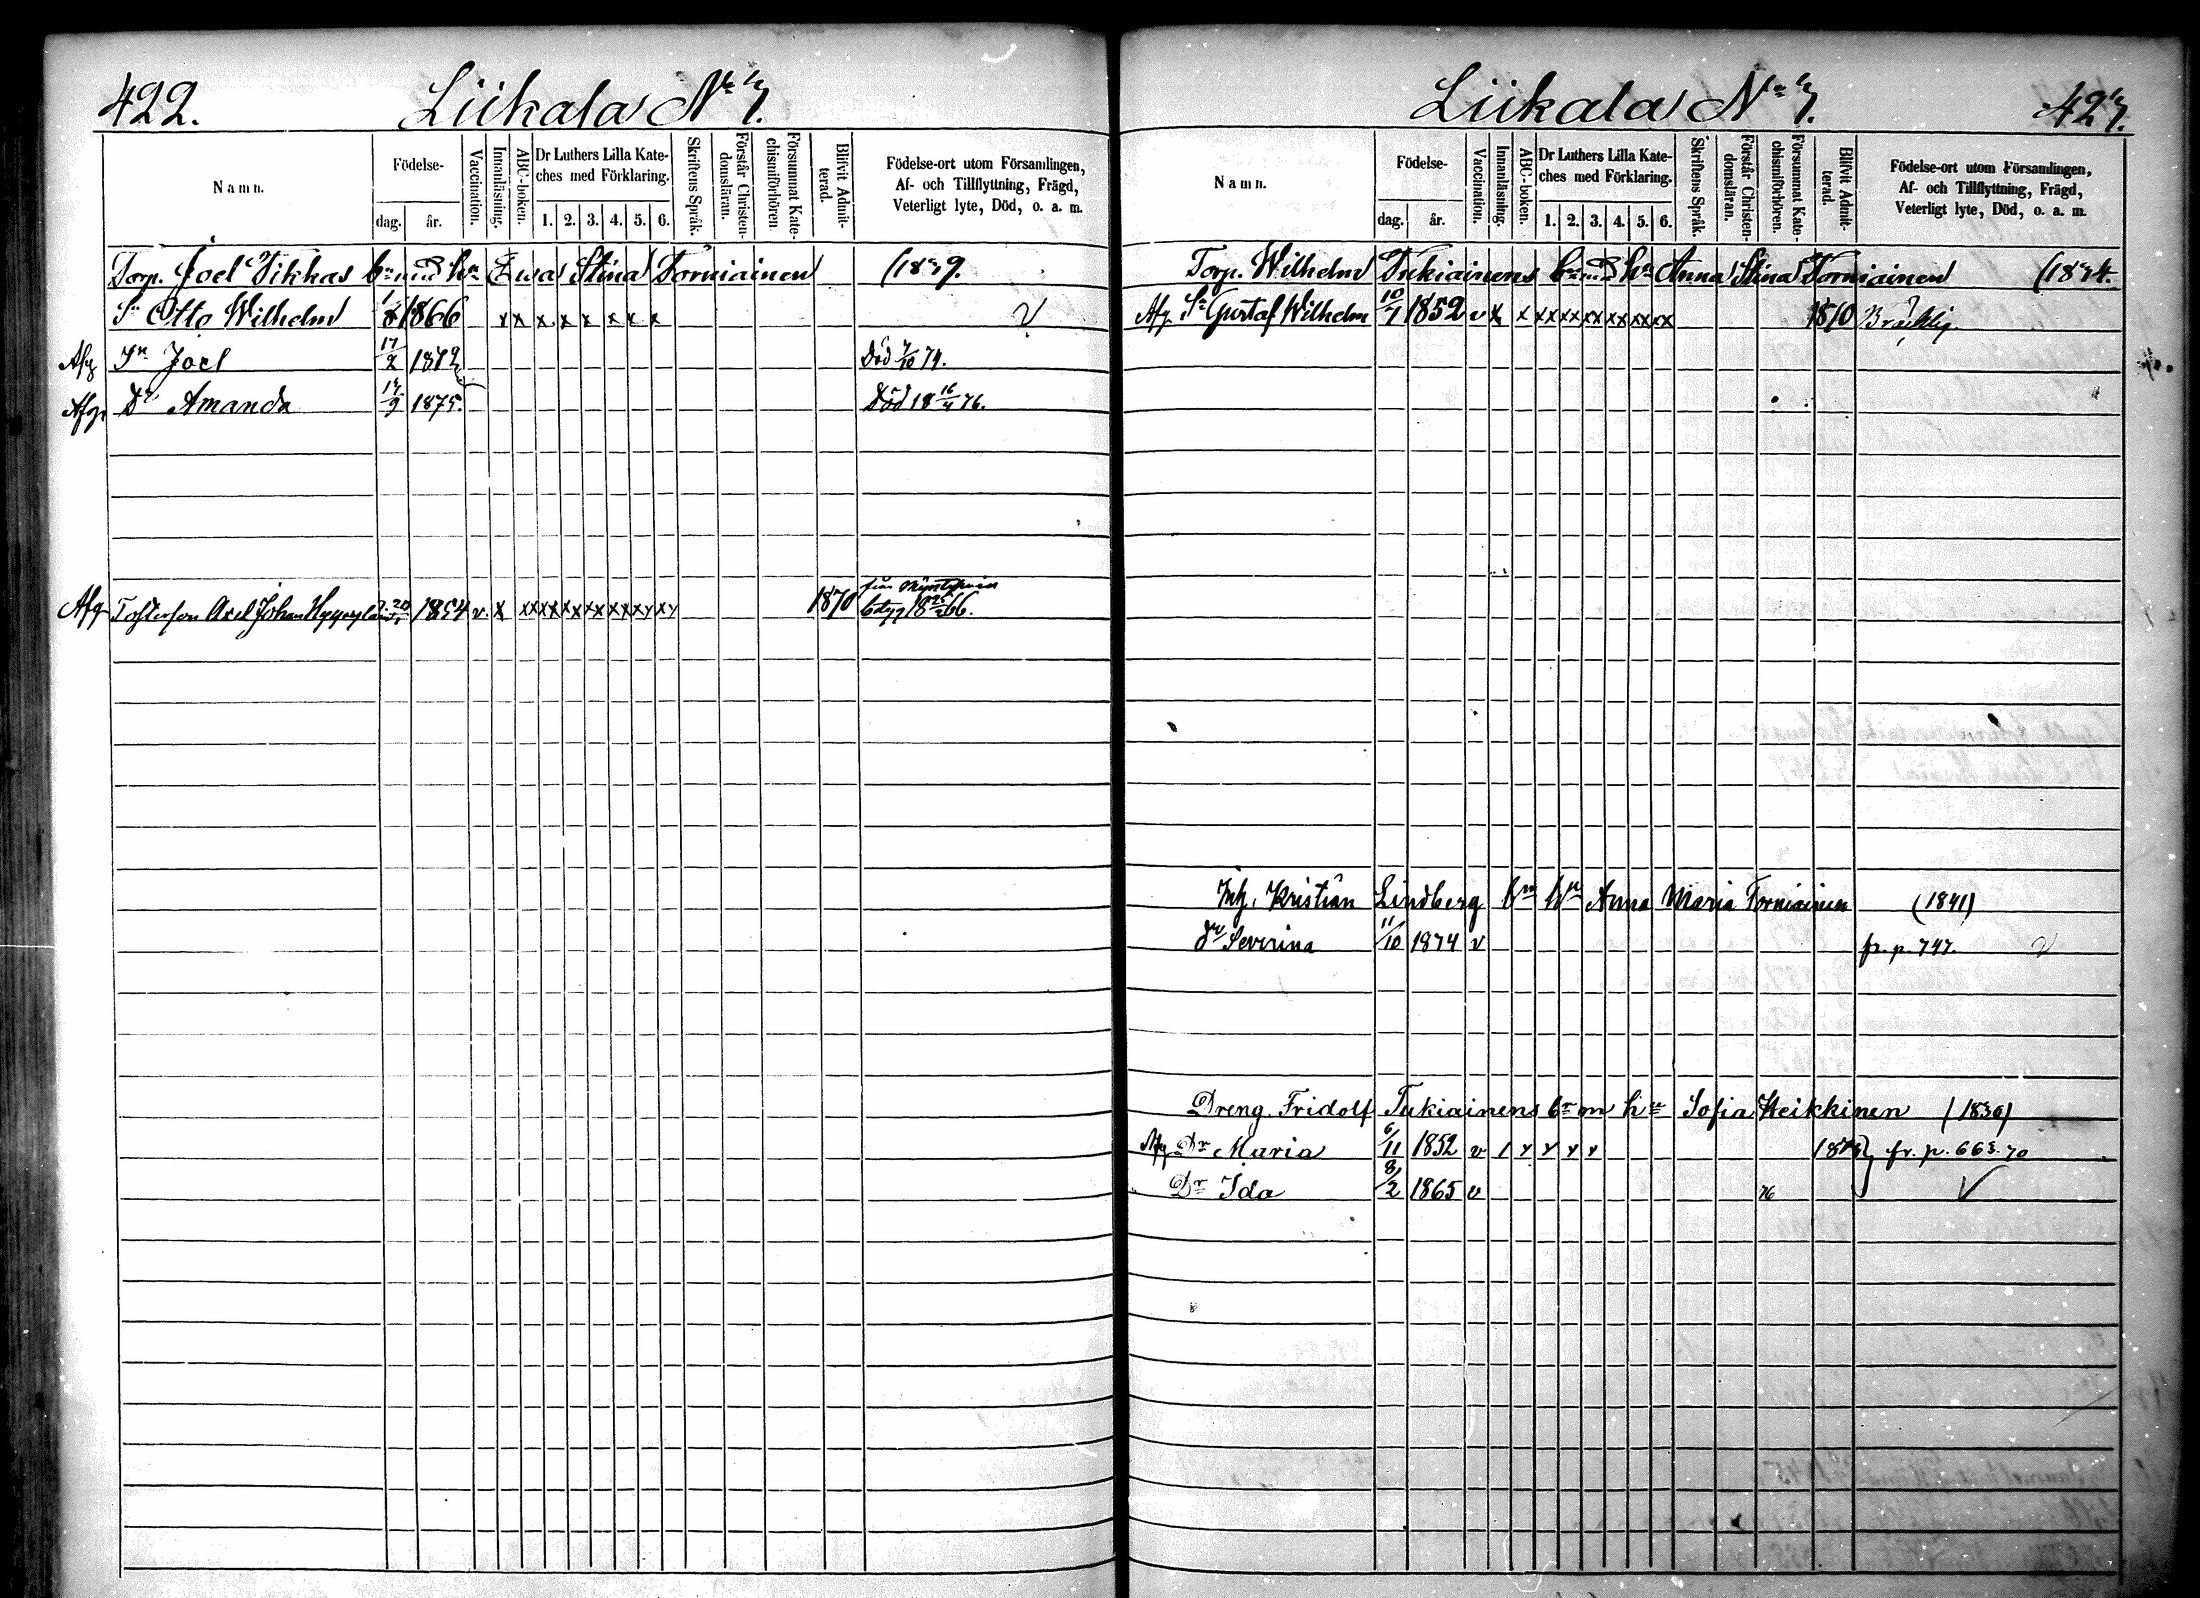 422. Liikala No 7.
Namn. Födelse- dag. år. Vaccination. Innanläsning. ABC-boken. Dr Luthers Lilla Kateches med Förklaring. 1. 2. 3. 4. 5. 6. Skriftens Språk. Förstår Christendomsläran. Försummat Katechismiförhören Blifvit Admitterad. Födelse-ort utom Församlingen, Af- och Tillflyttning, Frägd, Veterligt lyte, Död, o. a. m.
Torp. Joel Vikkas bn med hu Ewa Stina Torniainen (1839.
Sn Otto Wilhelm 1/8 1866 x x x x x x x x v
Afg Sn Joel 17/2 1872 Död 7/10 74.
Afg. Dr Amanda 14/9 1875. Död 18 16/4 76.
Afg Fosterson Axel Johan 20 1854 v x xx xx xx xx xx xy xy 1870 18 25/2 66.
Liikala No 7. 427.
Namn. Födelse- dag. år. Vaccination. Innanläsning. ABC-boken. Dr Luthers Lilla Kateches med Förklaring. 1. 2. 3. 4. 5. 6. Skriftens Språk. Förstår Christendomsläran. Försummat Katechismiförhören. Blifvit Admitterad. Födelse-ort utom Församlingen, Af- och Tillflyttning, Frägd, Veterligt lyte, Död, o. a. m.
Torp. Wilhelm Tukiainens bn med hu Anna Stina Torniainen (1834.
Afg. Sn Gustaf Wilhelm 10/7 1852 v x x xx xx xx xx xx xx 1870 Bräcklig.
Inh. Kristian Lindberg bn hu Anna Maria Torniainen (1841)
dr Severina 11/10 1874 v fr. p. 747. v
Dreng. Fridolf Tukiainens bn m hu Sofia Heikkinen (1830)
Afg Dr Maria 6/11 1852 v 1 x x x x fr. p. 663. 70
Dr Ida 8/2 1865 v 76 v